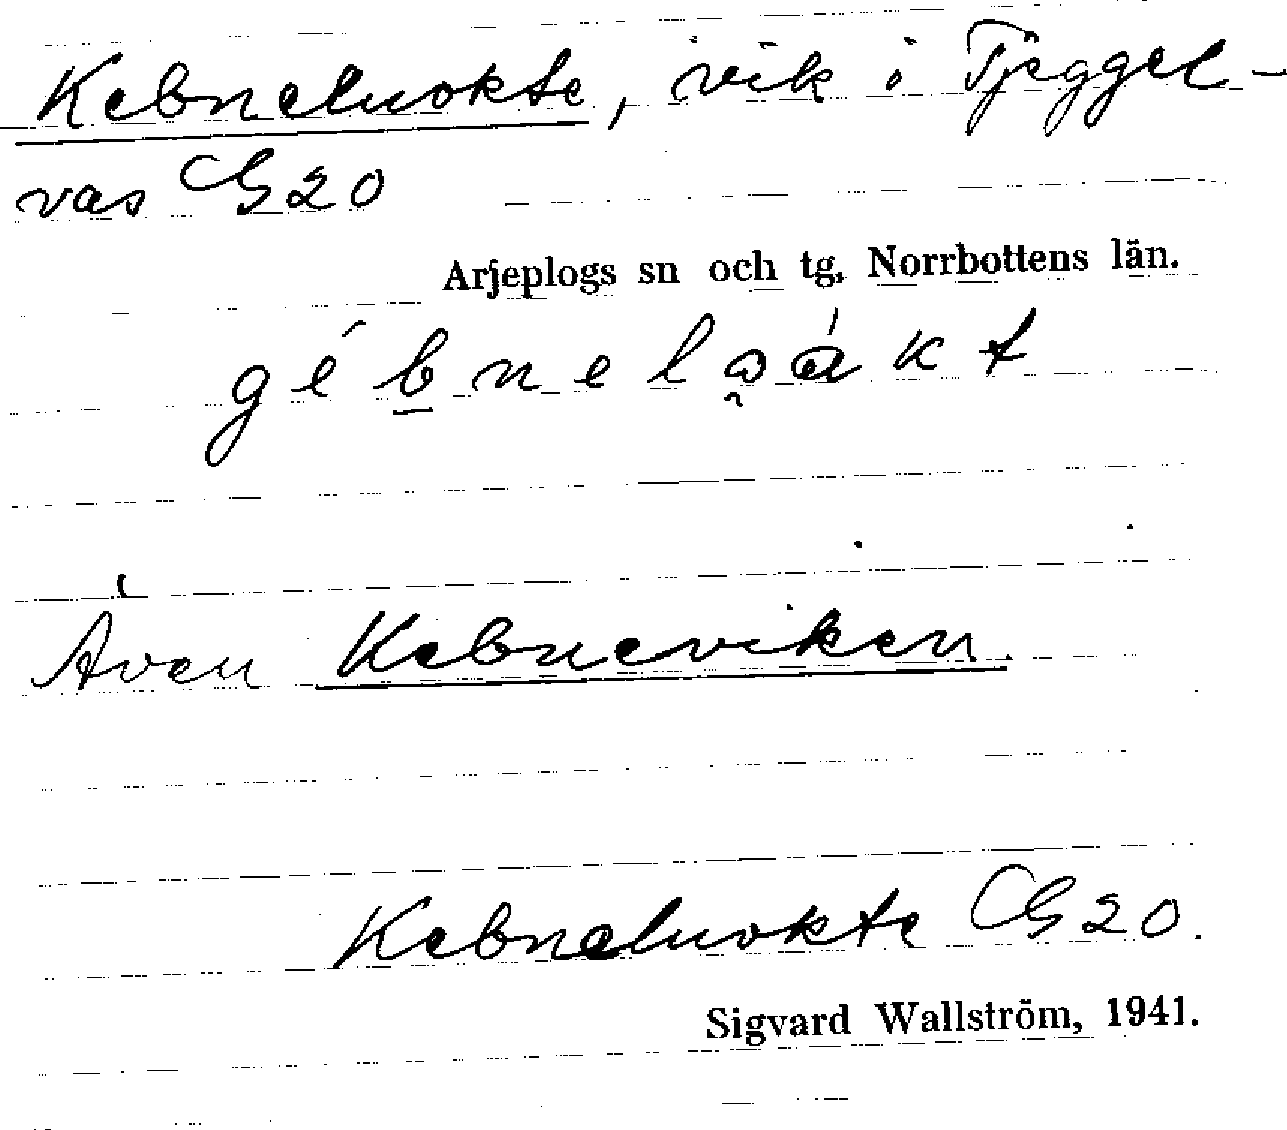 Kebneluokte, vik i Tjeggel-
vas G20
Arjeplogs sn och tg, Norrbottens län.
Även Kebneviken
Kebneluokte G20.
Sigvard Wallström, 1941.